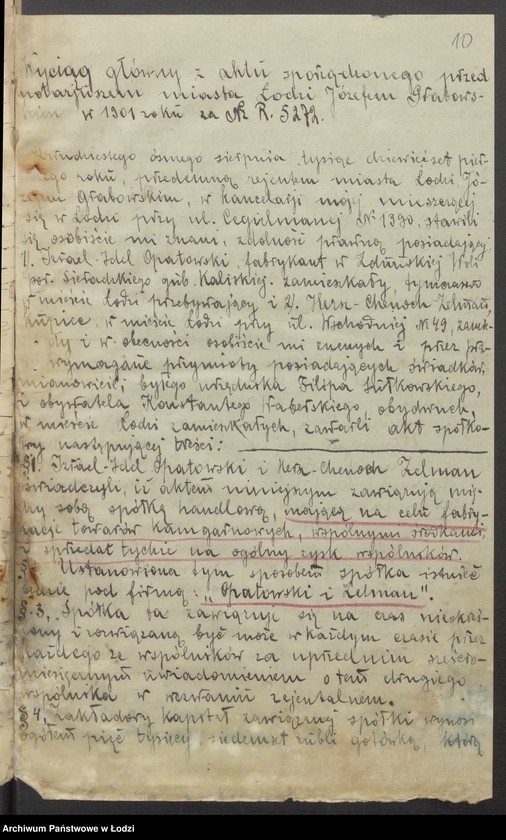 10
Wyciąg główny z aktu sporządzonego przed
notarjuszem miasta Łodzi Józefem Grabows-
kim w 1901 roku za № R. 5272.
dwudziestego ósmego sierpnia tysiąc dziewięćset pier-
wszego roku, przedemną rejentem miasta Łodzi, Jó-
zefem Grabowskim, w kancelarji mojej mieszczącej
się w Łodzi przy ul. Cegielnianej № 1390, stawili
się osobiście mi znani, zdolność prawną posiadający
1. Izrael-Idel Opatowski, fabrykant w Zduńskiej Woli
pow. Sieradzkiego gub. Kaliskiej zamieszkały, tymczasem
w mieście Łodzi przebywający i 2. Hersz-Chenoch Zelman,
kupiec, w mieście Łodzi przy ul. Wschodniej № 49, zamie-
szkały i w obecności osobiście mi znanych i przez pra-
wo wymagane przymioty posiadających świadków,
mianowicie, byłego urzędnika Filipa Sułkowskiego,
i obywatela Konstantego Waberskiego, obydwuch,
w mieście Łodzi zamieszkałych, zawarli akt spółko-
wy następującej treści:
§1. Izrael-Idel Opatowski i Hersz-Chenoch Zelman
świadczyli, iż aktem niniejszym zawiązują mię-
dzy sobą spółkę handlową, mającą na celu fabry-
kację towarów kamgarnowych, wspólnymi środkami
i sprzedaż tychże na ogólny zysk wspólników.
§ Ustanowiona tym sposobem spółka istnieć
będzie pod firmą: „Opatowski i Zelman".
§.3. Spółka ta zawiązuje się na czas nieokre-
ślony i rozwiązaną być może w każdym czasie przez
każdego ze wspólników za uprzednim sześcio-
miesięcznym uwiadomieniem o tem drugiego
wspólnika w wezwaniu rejentalnem.
§ 4. Zakładowy kapitał zawiązanej spółki wynosi
ogółem pięć tysięcy siedemset rubli gotówką, którą
Archiwum Państwowe w Łodzi